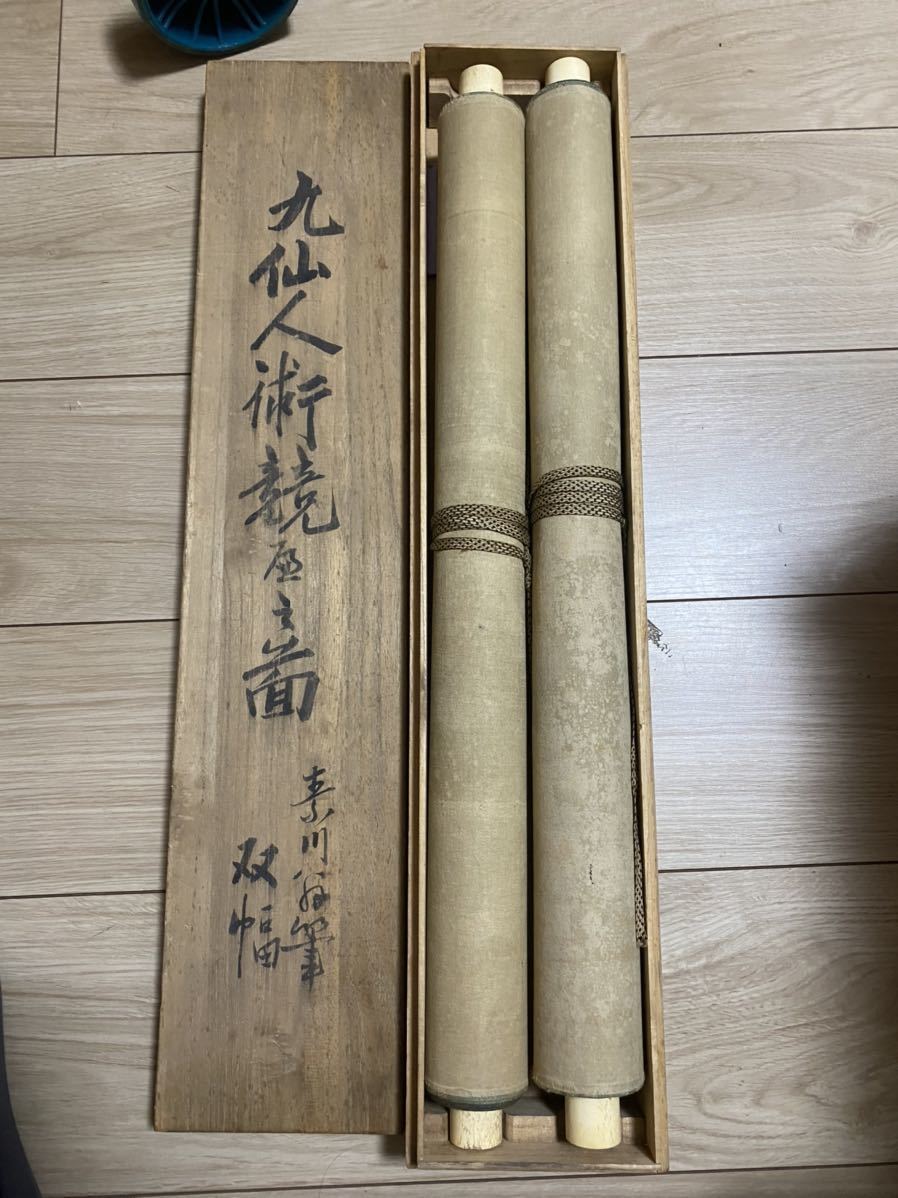 九仙人術競應之図
素川翁筆
双幅